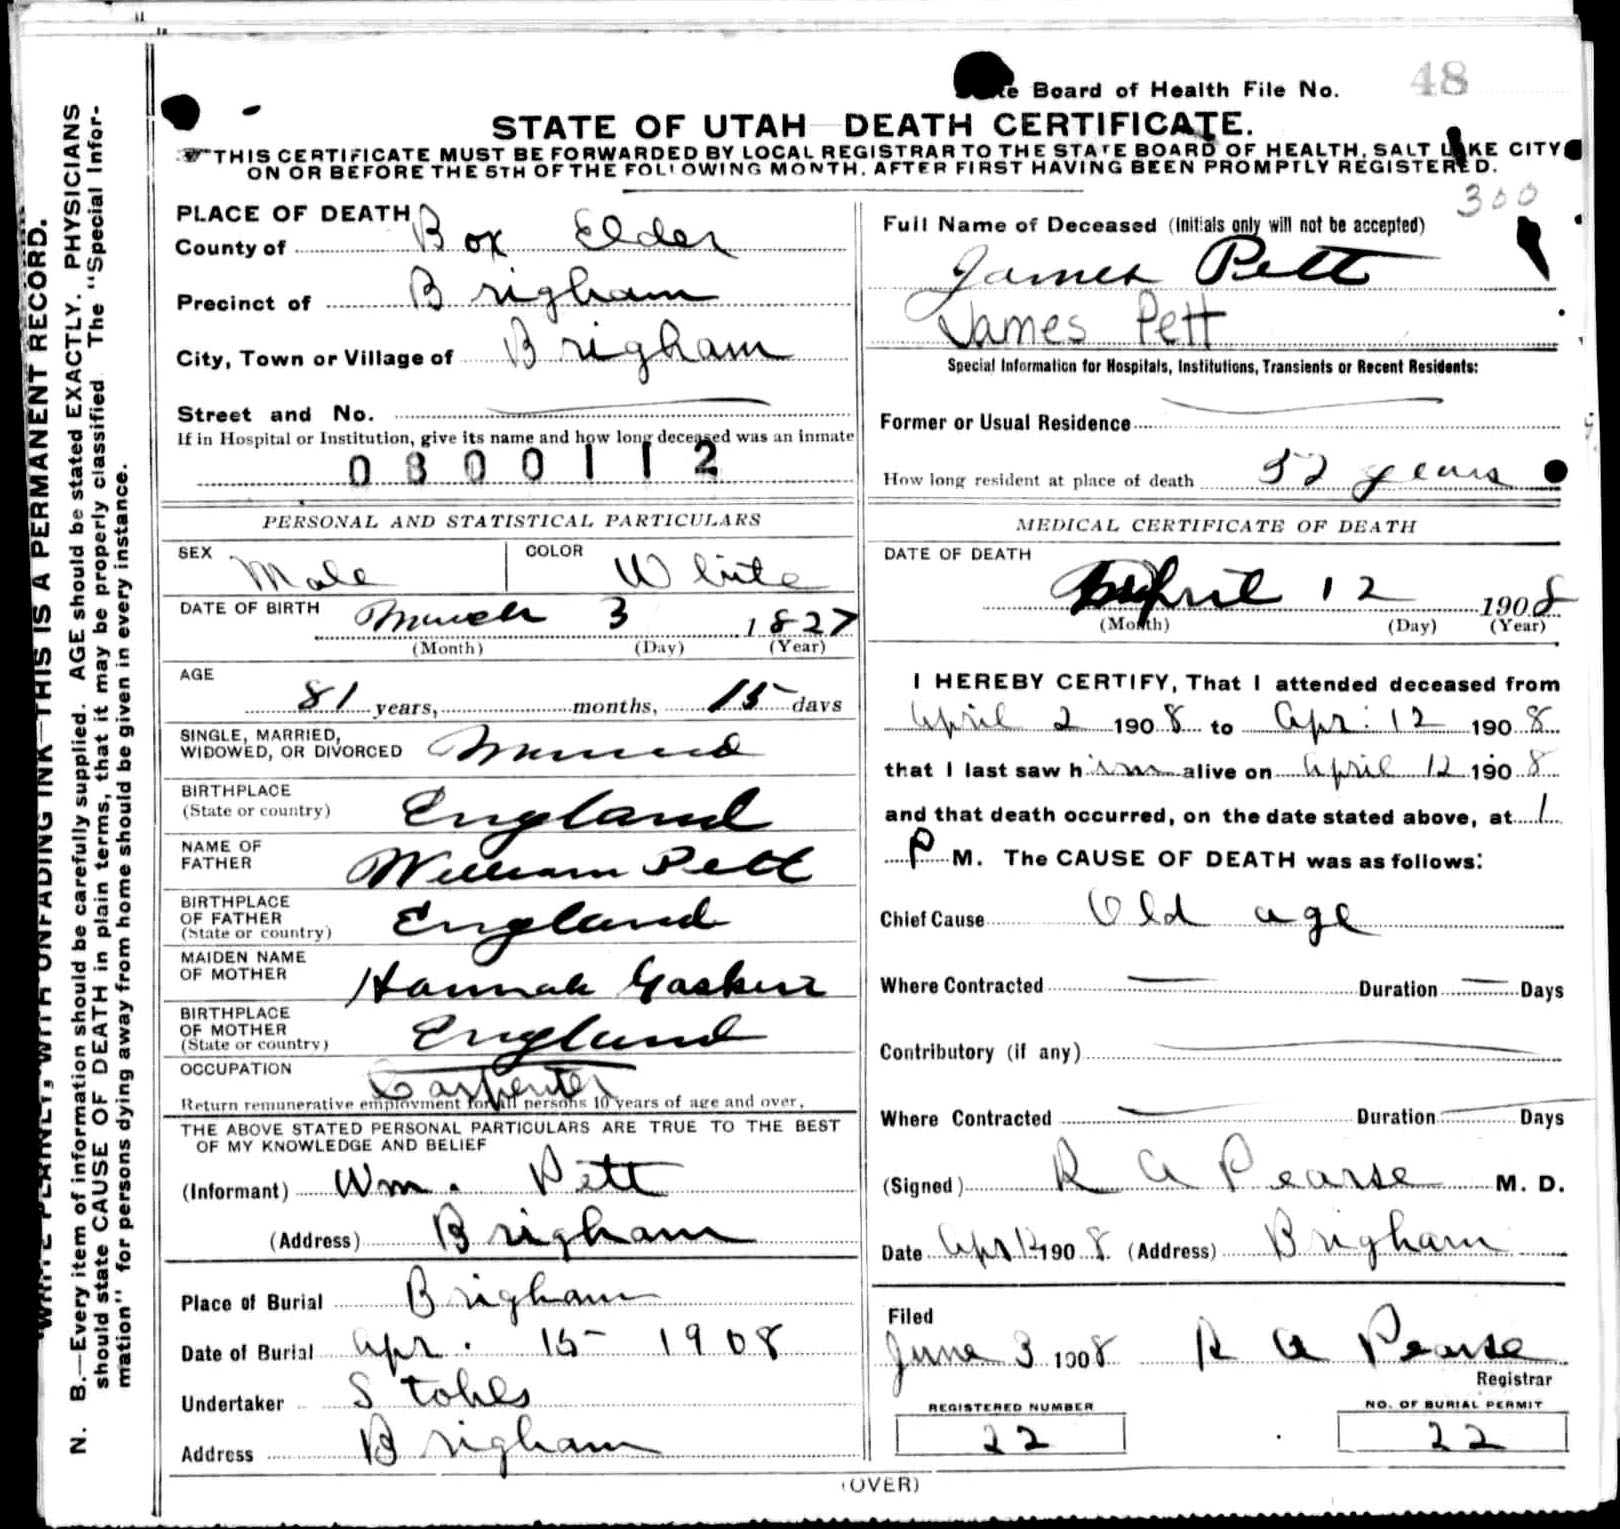 State Board of Health File No. 48
STATE OF UTAH DEATH CERTIFICATE.
THIS CERTIFICATE MUST BE FORWARDED BY LOCAL REGISTRAR TO THE STATE BOARD OF HEALTH, SALT LAKE CITY
ON OR BEFORE THE 5TH OF THE FOLLOWING MONTH, AFTER FIRST HAVING BEEN PROMPTLY REGISTERED.
300
WRITE PLAINLY, WITH UNFADING INK—THIS IS A PERMANENT RECORD.
N. B.—Every item of information should be carefully supplied. AGE should be stated EXACTLY. PHYSICIANS
should state CAUSE OF DEATH in plain terms, that it may be properly classified. The "Special Infor-
mation" for persons dying away from home should be given in every instance.
PLACE OF DEATH
County of Box Elder
Precinct of Brigham
City, Town or Village of Brigham
Street and No.
If in Hospital or Institution, give its name and how long deceased was an inmate
0300112
PERSONAL AND STATISTICAL PARTICULARS
SEX Male COLOR White
DATE OF BIRTH March 3 1827
(Month) (Day) (Year)
AGE
81 years, months, 15 days
SINGLE, MARRIED,
WIDOWED, OR DIVORCED Married
BIRTHPLACE
(State or country) England
NAME OF
FATHER William Pett
BIRTHPLACE
OF FATHER
(State or country) England
MAIDEN NAME
OF MOTHER Hannah
BIRTHPLACE
OF MOTHER
(State or country) England
OCCUPATION Carpenter
Return remunerative employment for all persons 10 years of age and over.
THE ABOVE STATED PERSONAL PARTICULARS ARE TRUE TO THE BEST
OF MY KNOWLEDGE AND BELIEF
(Informant) Wm. Pett
(Address) Brigham
Place of Burial Brigham
Date of Burial Apr. 15 1908
Undertaker Stohls
Address Brigham
Full Name of Deceased (Initials only will not be accepted)
James Pett
James Pett
Special Information for Hospitals, Institutions, Transients or Recent Residents:
Former or Usual Residence
How long resident at place of death 52 years
MEDICAL CERTIFICATE OF DEATH
DATE OF DEATH
April 12 1908
(Month) (Day) (Year)
I HEREBY CERTIFY, That I attended deceased from
April 2 1908 to Apr. 12 1908
that I last saw him alive on April 12 1908
and that death occurred, on the date stated above, at 1
P M. The CAUSE OF DEATH was as follows:
Chief Cause Old age
Where Contracted Duration Days
Contributory (if any)
Where Contracted Duration Days
(Signed) R A Pearse M. D.
Date Apr 12 1908 (Address) Brigham
Filed
June 3 1908 R A Pearse
Registrar
REGISTERED NUMBER NO. OF BURIAL PERMIT
22 22
(OVER)